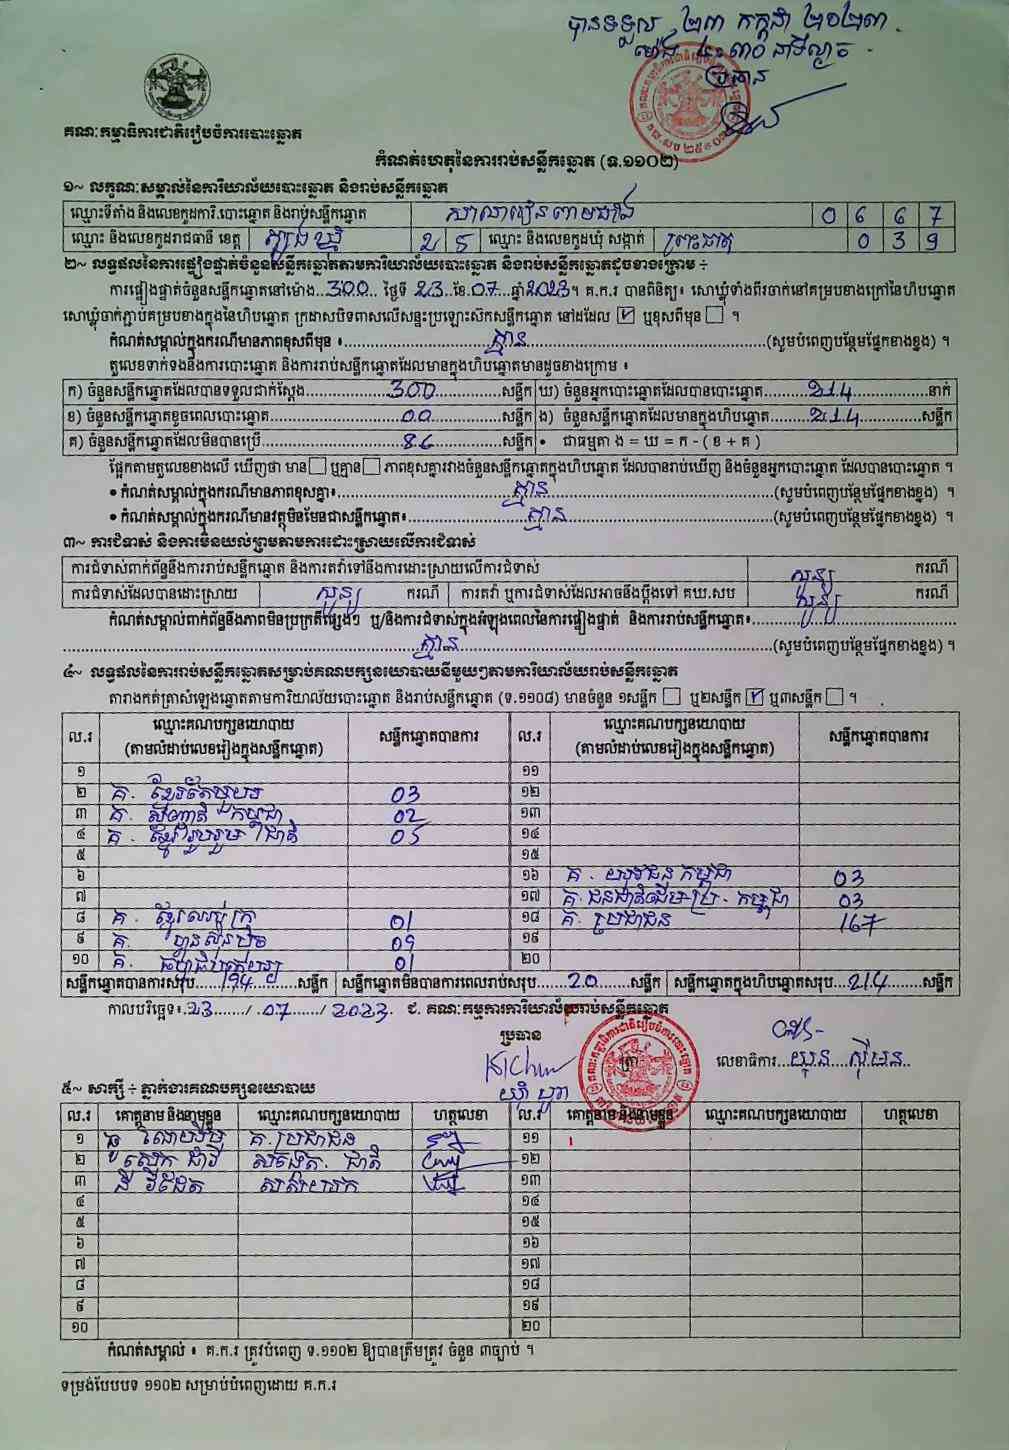 បានទទួល ២៣ កក្កដា ២០២៣
ម៉ោង ៤:៣០ នាទីល្ងាច
ប្រធាន
គណៈកម្មាធិការជាតិរៀបចំការបោះឆ្នោត
កំណត់ហេតុនៃការរាប់សន្លឹកឆ្នោត (ទ.១១០២)
១~ លក្ខណៈសម្គាល់នៃការិយាល័យបោះឆ្នោត និងរាប់សន្លឹកឆ្នោត
ឈ្មោះទីតាំង និងលេខកូដការិ.បោះឆ្នោត និងរាប់សន្លឹកឆ្នោត សាលារៀន 0 6 6 7
ឈ្មោះ និងលេខកូដរាជធានី ខេត្ត ត្បូងឃ្មុំ 2 5 ឈ្មោះ និងលេខកូដឃុំ សង្កាត់ 0 3 9
២~ លទ្ធផលនៃការផ្ទៀងផ្ទាត់ចំនួនសន្លឹកឆ្នោតតាមការិយាល័យបោះឆ្នោត និងរាប់សន្លឹកឆ្នោតដូចខាងក្រោម ÷
ការផ្ទៀងផ្ទាត់ចំនួនសន្លឹកឆ្នោតនៅម៉ោង..300... ថ្ងៃទី 23 ខែ 07 ឆ្នាំ 2023។ គ.ក.រ បានពិនិត្យ៖ សោឃ្លុំទាំងពីរចាក់នៅគម្របខាងក្រៅនៃហិបឆ្នោត
សោឃ្លុំចាក់ភ្ជាប់គម្របខាងក្នុងនៃហិបឆ្នោត ក្រដាសបិទពាសលើសន្ទះប្រឡោះសិកសន្លឹកឆ្នោត នៅដដែល ☑ ឬខុសពីមុន ☐ ។
កំណត់សម្គាល់ក្នុងករណីមានភាពខុសពីមុន ៖ គ្មាន (សូមបំពេញបន្ថែមផ្នែកខាងខ្នង) ។
តួលេខទាក់ទងនឹងការបោះឆ្នោត និងការរាប់សន្លឹកឆ្នោតដែលមានក្នុងហិបឆ្នោតមានដូចខាងក្រោម ៖
ក) ចំនួនសន្លឹកឆ្នោតដែលបានទទួលជាក់ស្តែង 300 សន្លឹក ឃ) ចំនួនអ្នកបោះឆ្នោតដែលបានបោះឆ្នោត 214 នាក់
ខ) ចំនួនសន្លឹកឆ្នោតខូចពេលបោះឆ្នោត 00 សន្លឹក ង) ចំនួនសន្លឹកឆ្នោតដែលមានក្នុងហិបឆ្នោត 214 សន្លឹក
គ) ចំនួនសន្លឹកឆ្នោតដែលមិនបានប្រើ 86 សន្លឹក • ជាធម្មតា ង = ឃ = ក - ( ខ + គ )
ផ្អែកតាមតួលេខខាងលើ ឃើញថា មាន ☐ ឬគ្មាន ☐ ភាពខុសគ្នារវាងចំនួនសន្លឹកឆ្នោតក្នុងហិបឆ្នោត ដែលបានរាប់ឃើញ និងចំនួនអ្នកបោះឆ្នោត ដែលបានបោះឆ្នោត ។
• កំណត់សម្គាល់ក្នុងករណីមានភាពខុសគ្នា៖ គ្មាន (សូមបំពេញបន្ថែមផ្នែកខាងខ្នង) ។
• កំណត់សម្គាល់ក្នុងករណីមានវត្ថុមិនមែនជាសន្លឹកឆ្នោត៖ គ្មាន (សូមបំពេញបន្ថែមផ្នែកខាងខ្នង) ។
៣~ ការជំទាស់ និងការមិនយល់ព្រមតាមការដោះស្រាយលើការជំទាស់
ការជំទាស់ពាក់ព័ន្ធនឹងការរាប់សន្លឹកឆ្នោត និងការតវ៉ាទៅនឹងការដោះស្រាយលើការជំទាស់ សូន្យ ករណី
ការជំទាស់ដែលបានដោះស្រាយ សូន្យ ករណី ការតវ៉ា ឬការជំទាស់ដែលអាចនឹងប្តឹងទៅ គឃ.សប សូន្យ ករណី
កំណត់សម្គាល់ពាក់ព័ន្ធនឹងភាពមិនប្រក្រតីផ្សេងៗ ឬ/និងការជំទាស់ក្នុងអំឡុងពេលនៃការផ្ទៀងផ្ទាត់ និងការរាប់សន្លឹកឆ្នោត៖
គ្មាន (សូមបំពេញបន្ថែមផ្នែកខាងខ្នង) ។
៤~ លទ្ធផលនៃការរាប់សន្លឹកឆ្នោតសម្រាប់គណបក្សនយោបាយនីមួយៗតាមការិយាល័យរាប់សន្លឹកឆ្នោត
តារាងកត់ត្រាសំឡេងឆ្នោតតាមការិយាល័យបោះឆ្នោត និងរាប់សន្លឹកឆ្នោត (ទ.១១០៨) មានចំនួន ១សន្លឹក ☐ ឬ២សន្លឹក ☑ ឬ៣សន្លឹក ☐ ។
ល.រ ឈ្មោះគណបក្សនយោបាយ (តាមលំដាប់លេខរៀងក្នុងសន្លឹកឆ្នោត) សន្លឹកឆ្នោតបានការ ល.រ ឈ្មោះគណបក្សនយោបាយ (តាមលំដាប់លេខរៀងក្នុងសន្លឹកឆ្នោត) សន្លឹកឆ្នោតបានការ
១ ១១
២ គ. ខ្មែរតែមួយ 03 ១២
៣ គ. កម្ពុជា 02 ១៣
៤ គ. ខ្មែររួបរួមជាតិ 05 ១៤
៥ ១៥
៦ ១៦ គ. យុវជនកម្ពុជា 03
៧ ១៧ គ. ជនជាតិដើម កម្ពុជា 03
៨ គ. 01 ១៨ គ. ប្រជាជន 167
៩ គ. 09 ១៩
១០ គ. 01 ២០
សន្លឹកឆ្នោតបានការសរុប 194 សន្លឹក សន្លឹកឆ្នោតមិនបានការពេលរាប់សរុប 20 សន្លឹក សន្លឹកឆ្នោតក្នុងហិបឆ្នោតសរុប 214 សន្លឹក
កាលបរិច្ឆេទ៖ 23 / 07 / 2023 ជ. គណៈកម្មការការិយាល័យរាប់សន្លឹកឆ្នោត
ប្រធាន
ត្រា លេខាធិការ
៥~ សាក្សី ÷ ភ្នាក់ងារគណបក្សនយោបាយ
ល.រ គោត្តនាម និងនាមខ្លួន ឈ្មោះគណបក្សនយោបាយ ហត្ថលេខា ល.រ គោត្តនាម និងនាមខ្លួន ឈ្មោះគណបក្សនយោបាយ ហត្ថលេខា
១ គ.ប្រជាជន ១១
២ ជាតិ ១២
៣ ១៣
៤ ១៤
៥ ១៥
៦ ១៦
៧ ១៧
៨ ១៨
៩ ១៩
១០ ២០
កំណត់សម្គាល់ ៖ គ.ក.រ ត្រូវបំពេញ ទ.១១០២ ឱ្យបានត្រឹមត្រូវ ចំនួន ៣ច្បាប់ ។
ទម្រង់បែបបទ ១១០២ សម្រាប់បំពេញដោយ គ.ក.រ